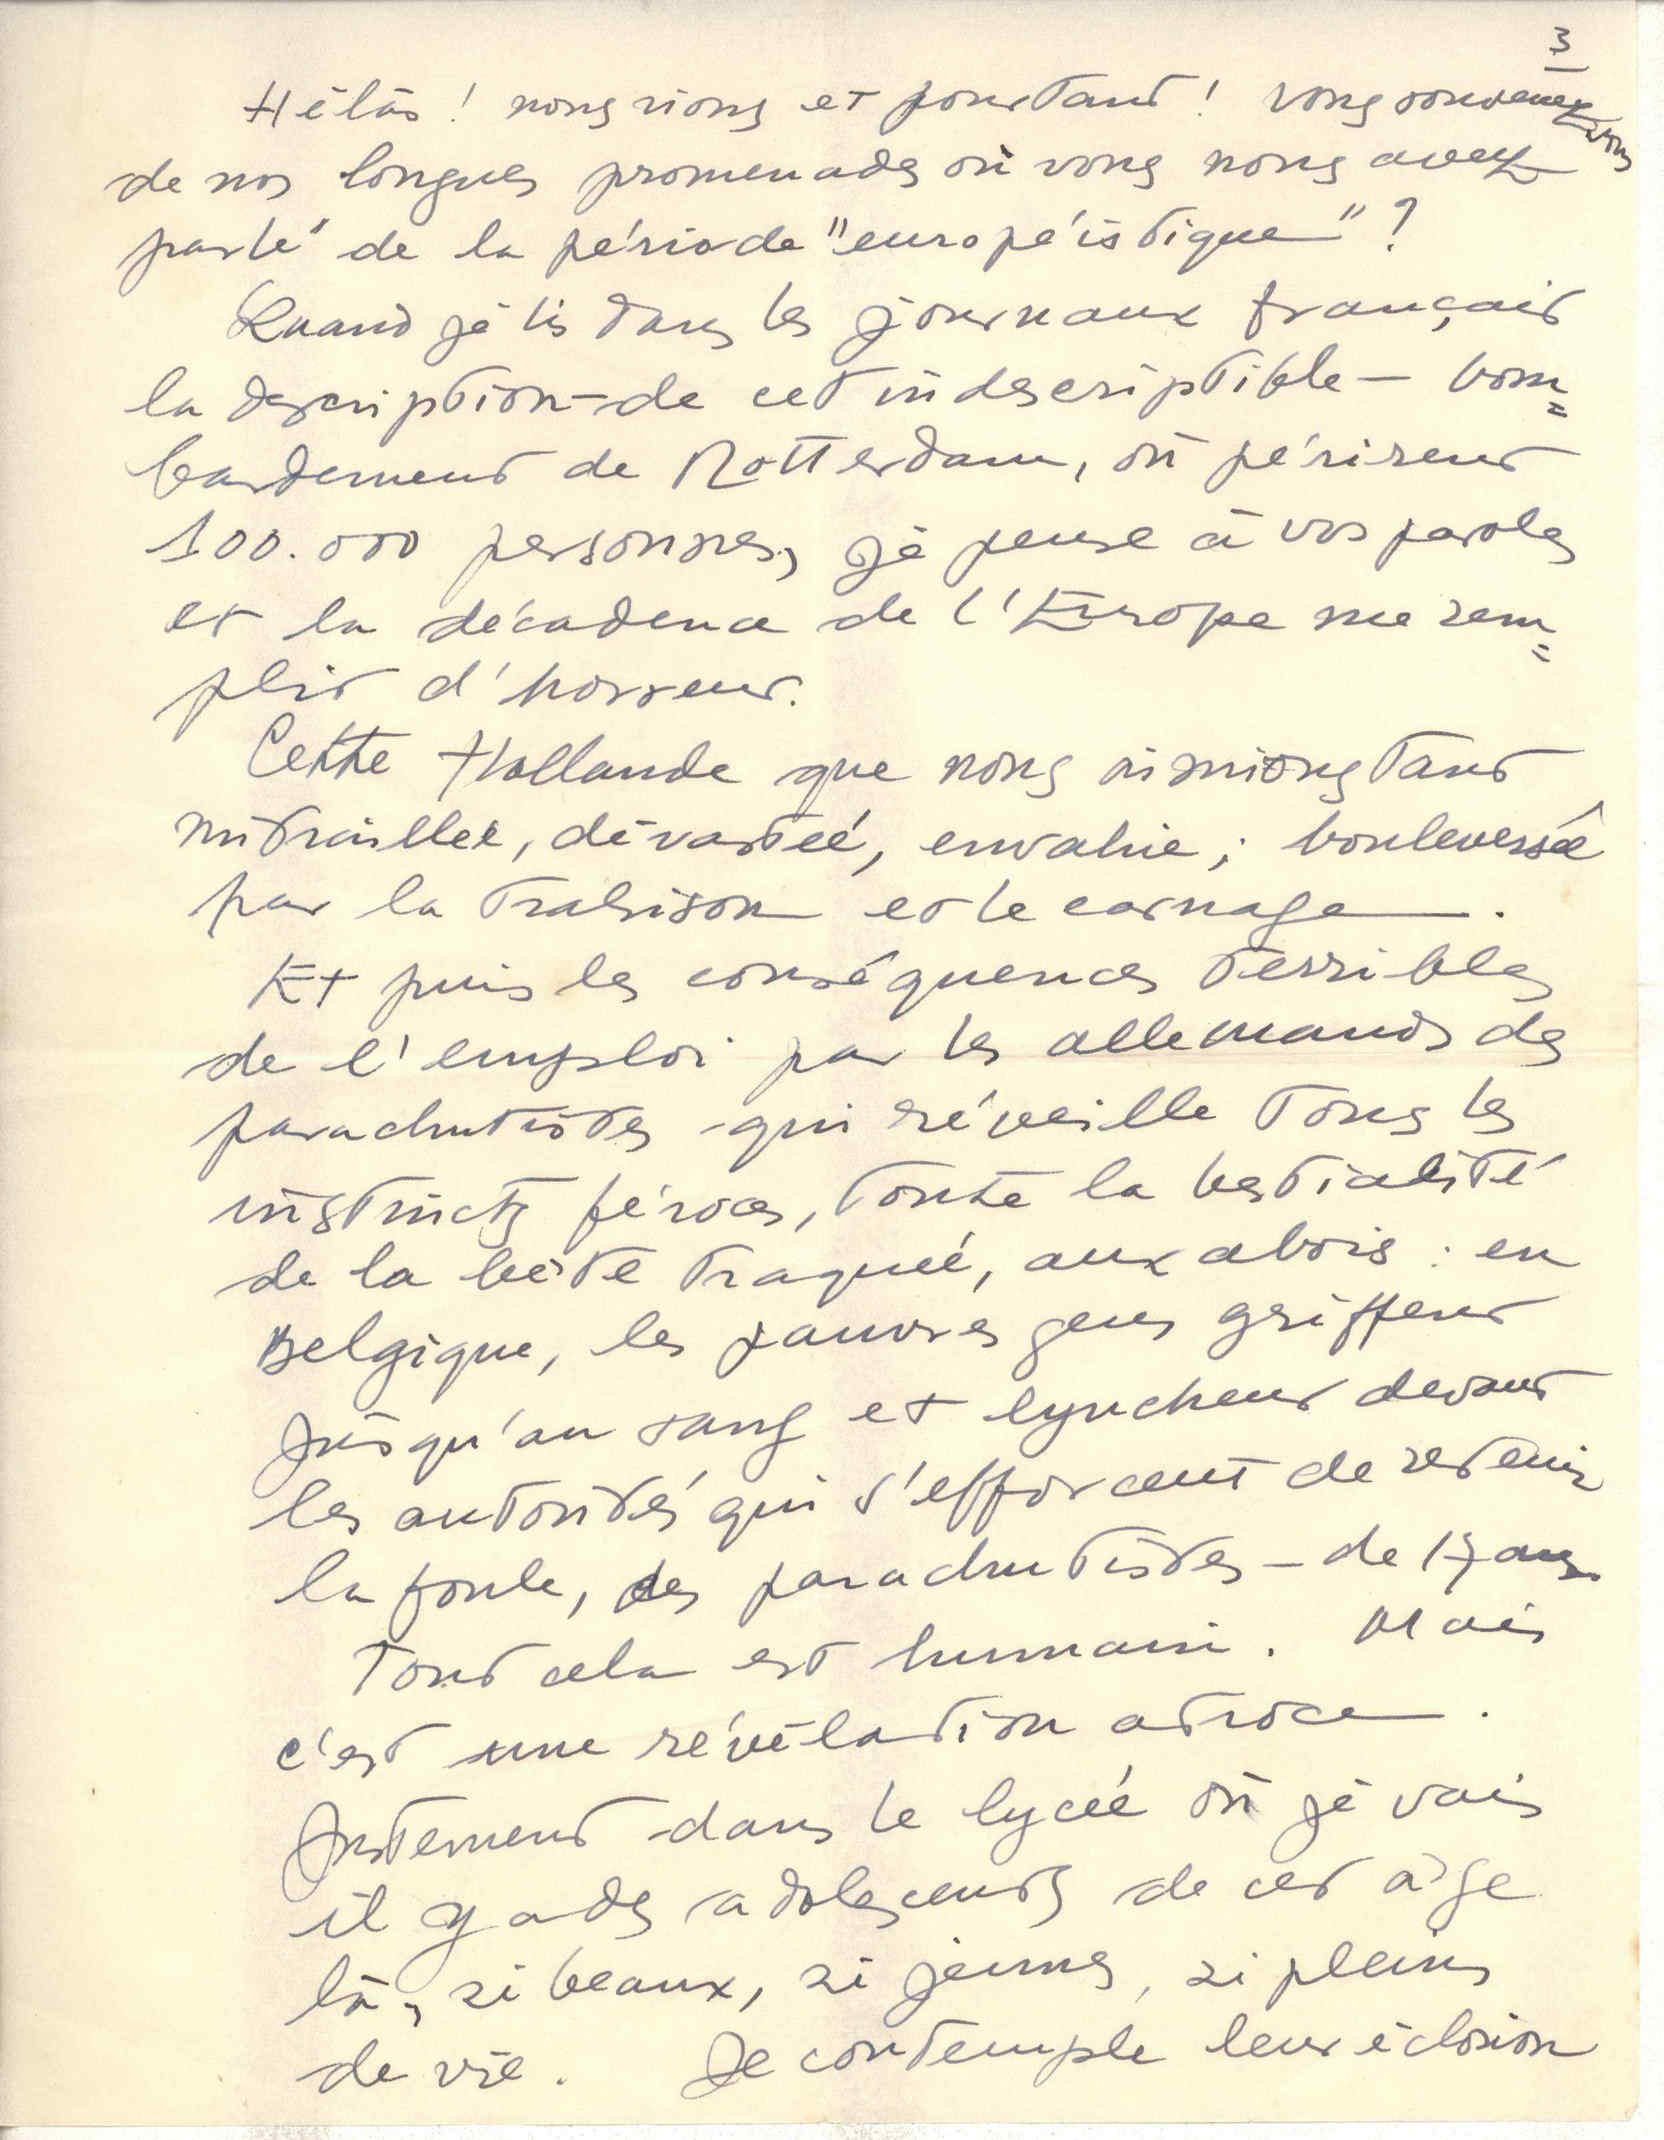 3
Hélàs ! nous rions et pourtant ! vous souvenez-vous
de nos longues promenades où vous nous avez
parlé de la période "européistique" ?
Quand je lis dans les journaux français
la description – de cet indescriptible – bom=
bardement de Rotterdam, où périrent
100.000 personnes, je pense à vos paroles
et la décadence de l'Europe me rem=
plit d'horreur.
Cette Hollande que nous aimions tant
mitraillée, dévastée, envahie ; bouleversée
par la trahison et le carnage.
Et puis les conséquences terribles
de l'emploi par les allemands des
parachutistes qui réveille tous les
instincts féroces, toute la bestialité
de la bête traquée, aux abois : en
Belgique, les pauvres gens griffent
jusqu'au sang et lynchent devant
les autorités qui s'efforcent de retenir
la foule, des parachutistes – de 17 ans.
Tout cela est humain. Mais
c'est une révélation atroce.
Justement dans le lycée où je vais
il y a des adolescents de cet âge
là, si beaux, si jeunes, si pleins
de vie. Je contemple leur éclosion